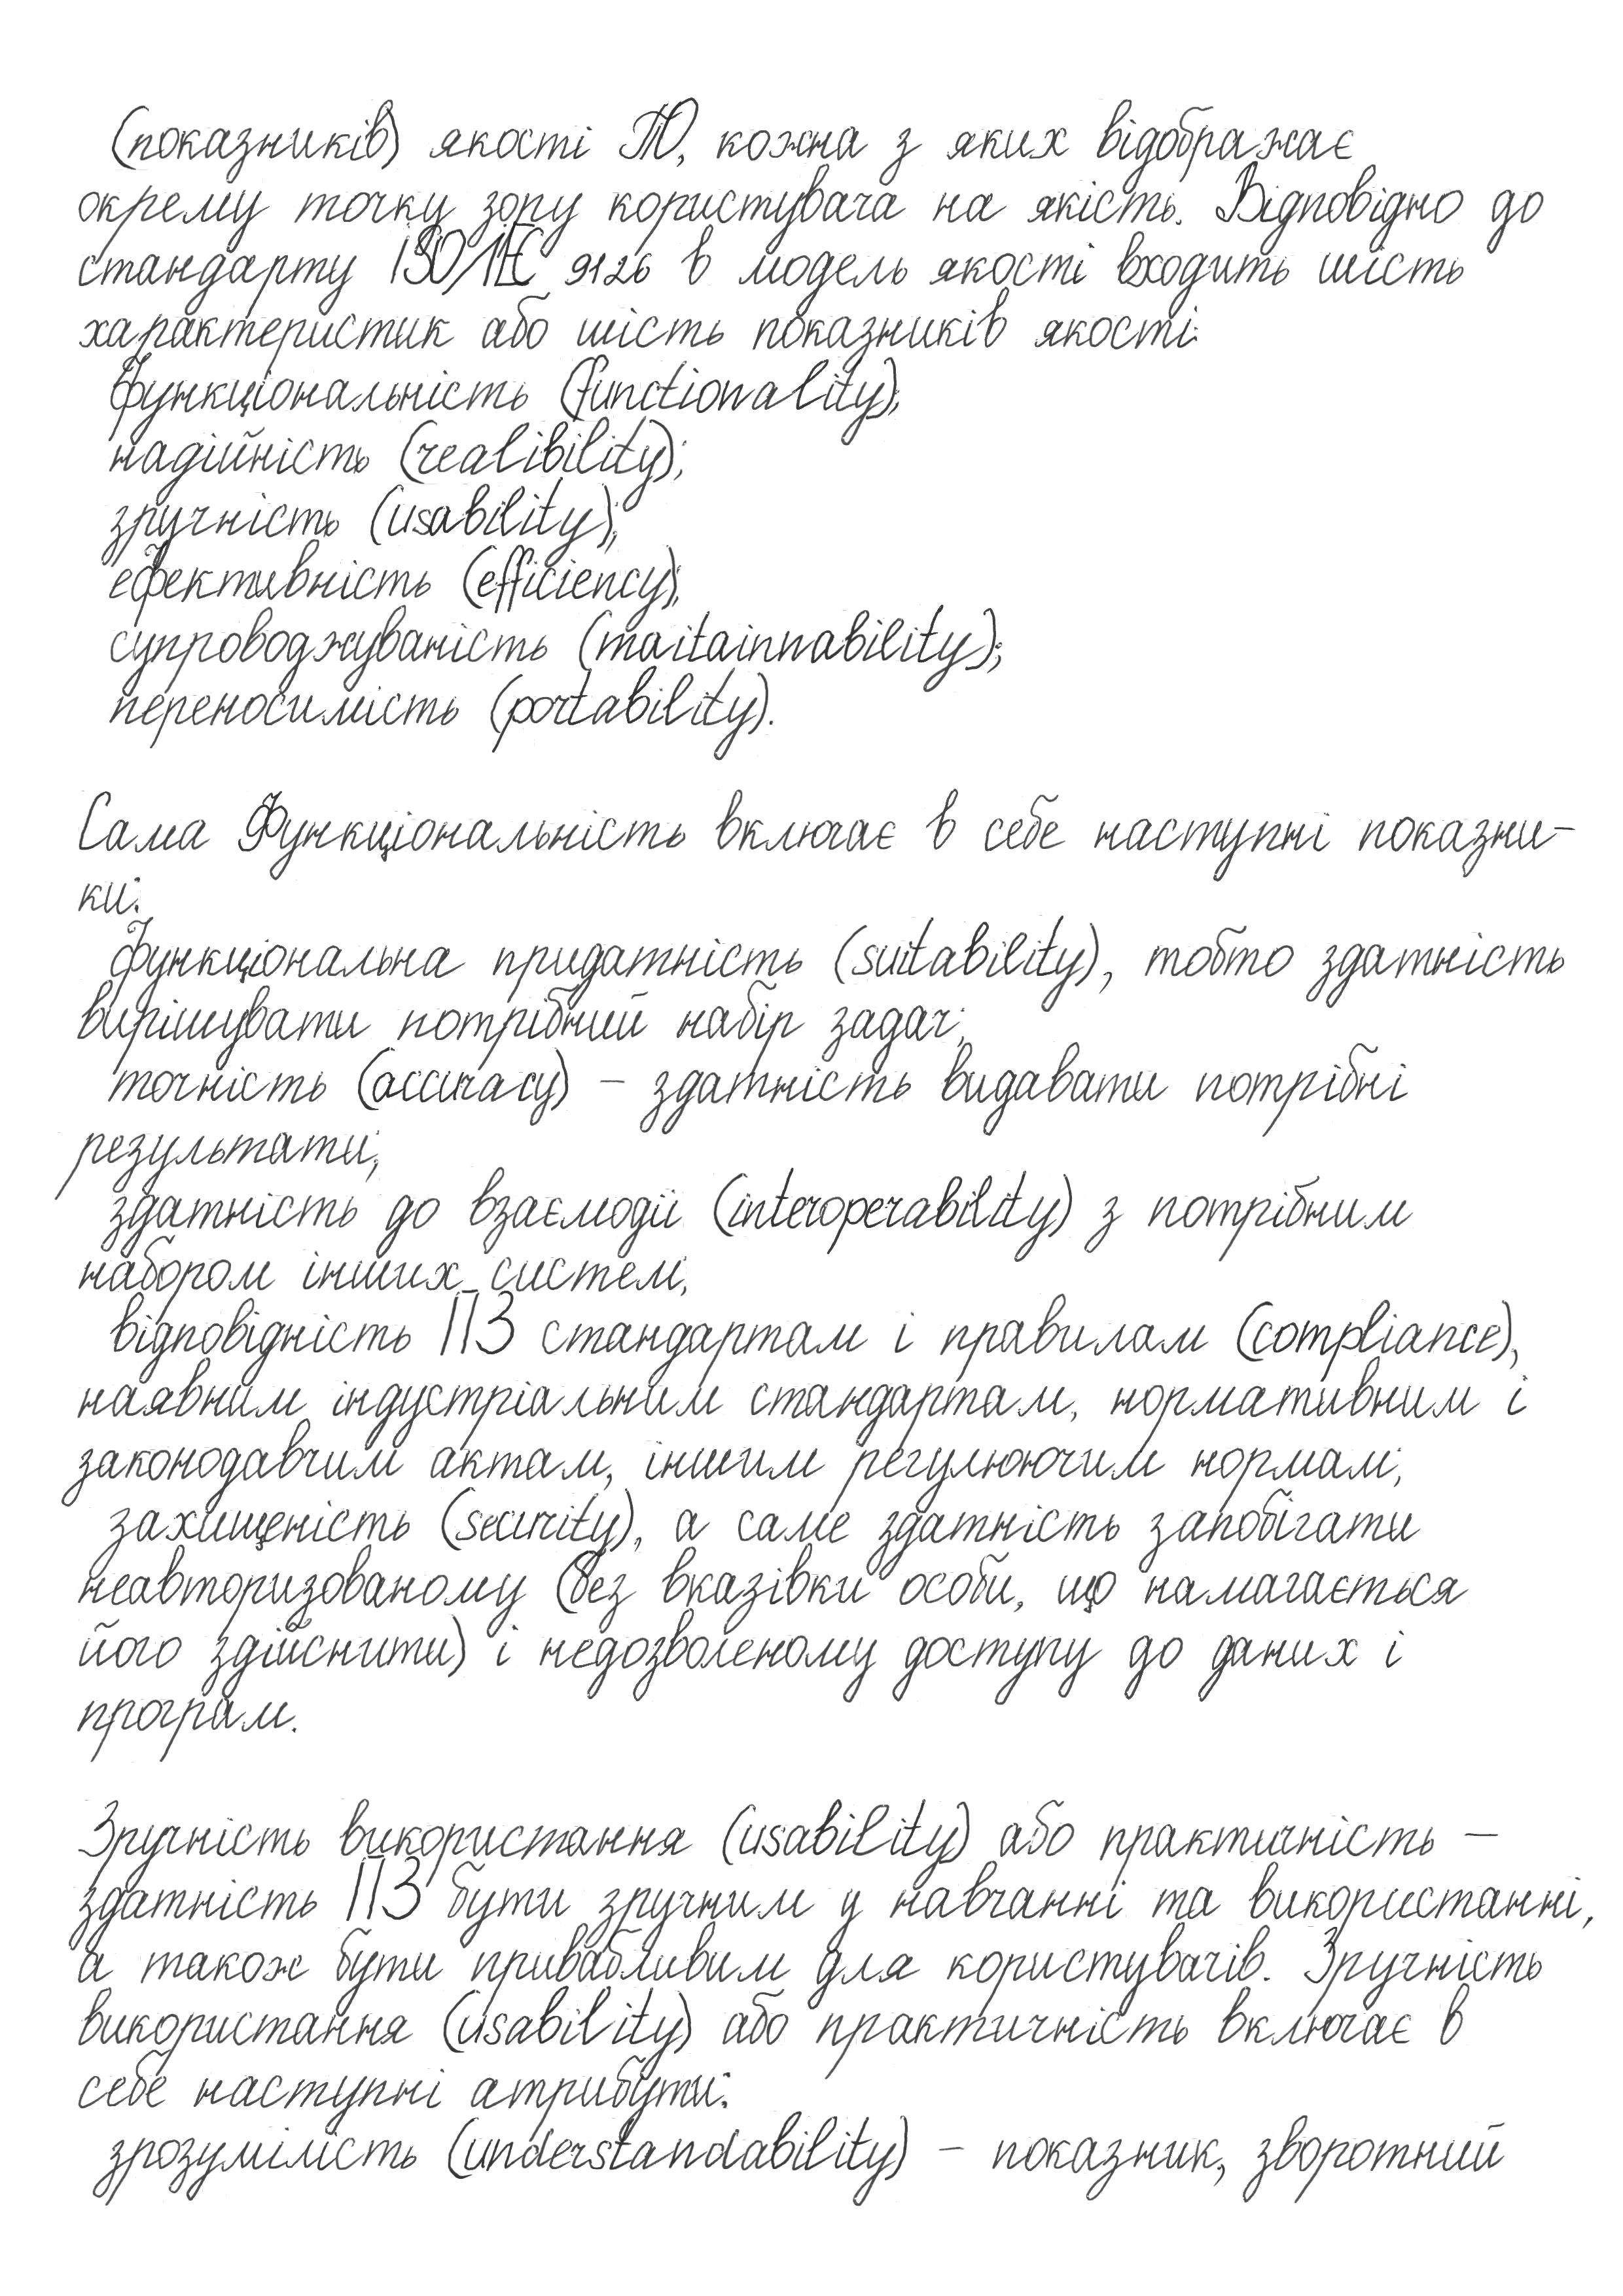 (показників) якості ТЮ, кожна з яких відображає
окрему точку зору користувача на якість. Відповідно до
стандарту ISO/IEC 9126 в модель якості входить шість
характеристик або шість показників якості:
функціональність (functionality);
надійність (realibility);
зручність (usability);
ефективність (efficiency);
супроводжуваність (maitainnability);
переносимість (portability).
Сама Функціональність включає в себе наступні показни-
ки:
функціональна придатність (suitability), тобто здатність
вирішувати потрібний набір задач;
точність (accuracy) – здатність видавати потрібні
результати;
здатність до взаємодії (interoperability) з потрібним
набором інших систем;
відповідність ПЗ стандартам і правилам (compliance),
наявним індустріальним стандартам, нормативним і
законодавчим актам, іншим регулюючим нормам;
захищеність (security), а саме здатність запобігати
неавторизованому (без вказівки особи, що намагається
його здійснити) і недозволеному доступу до даних і
програм.
Зручність використання (usability) або практичність –
здатність ПЗ бути зручним у навчанні та використанні,
а також бути привабливим для користувачів. Зручність
використання (usability) або практичність включає в
себе наступні атрибути:
зрозумілість (understandability) – показник, зворотний